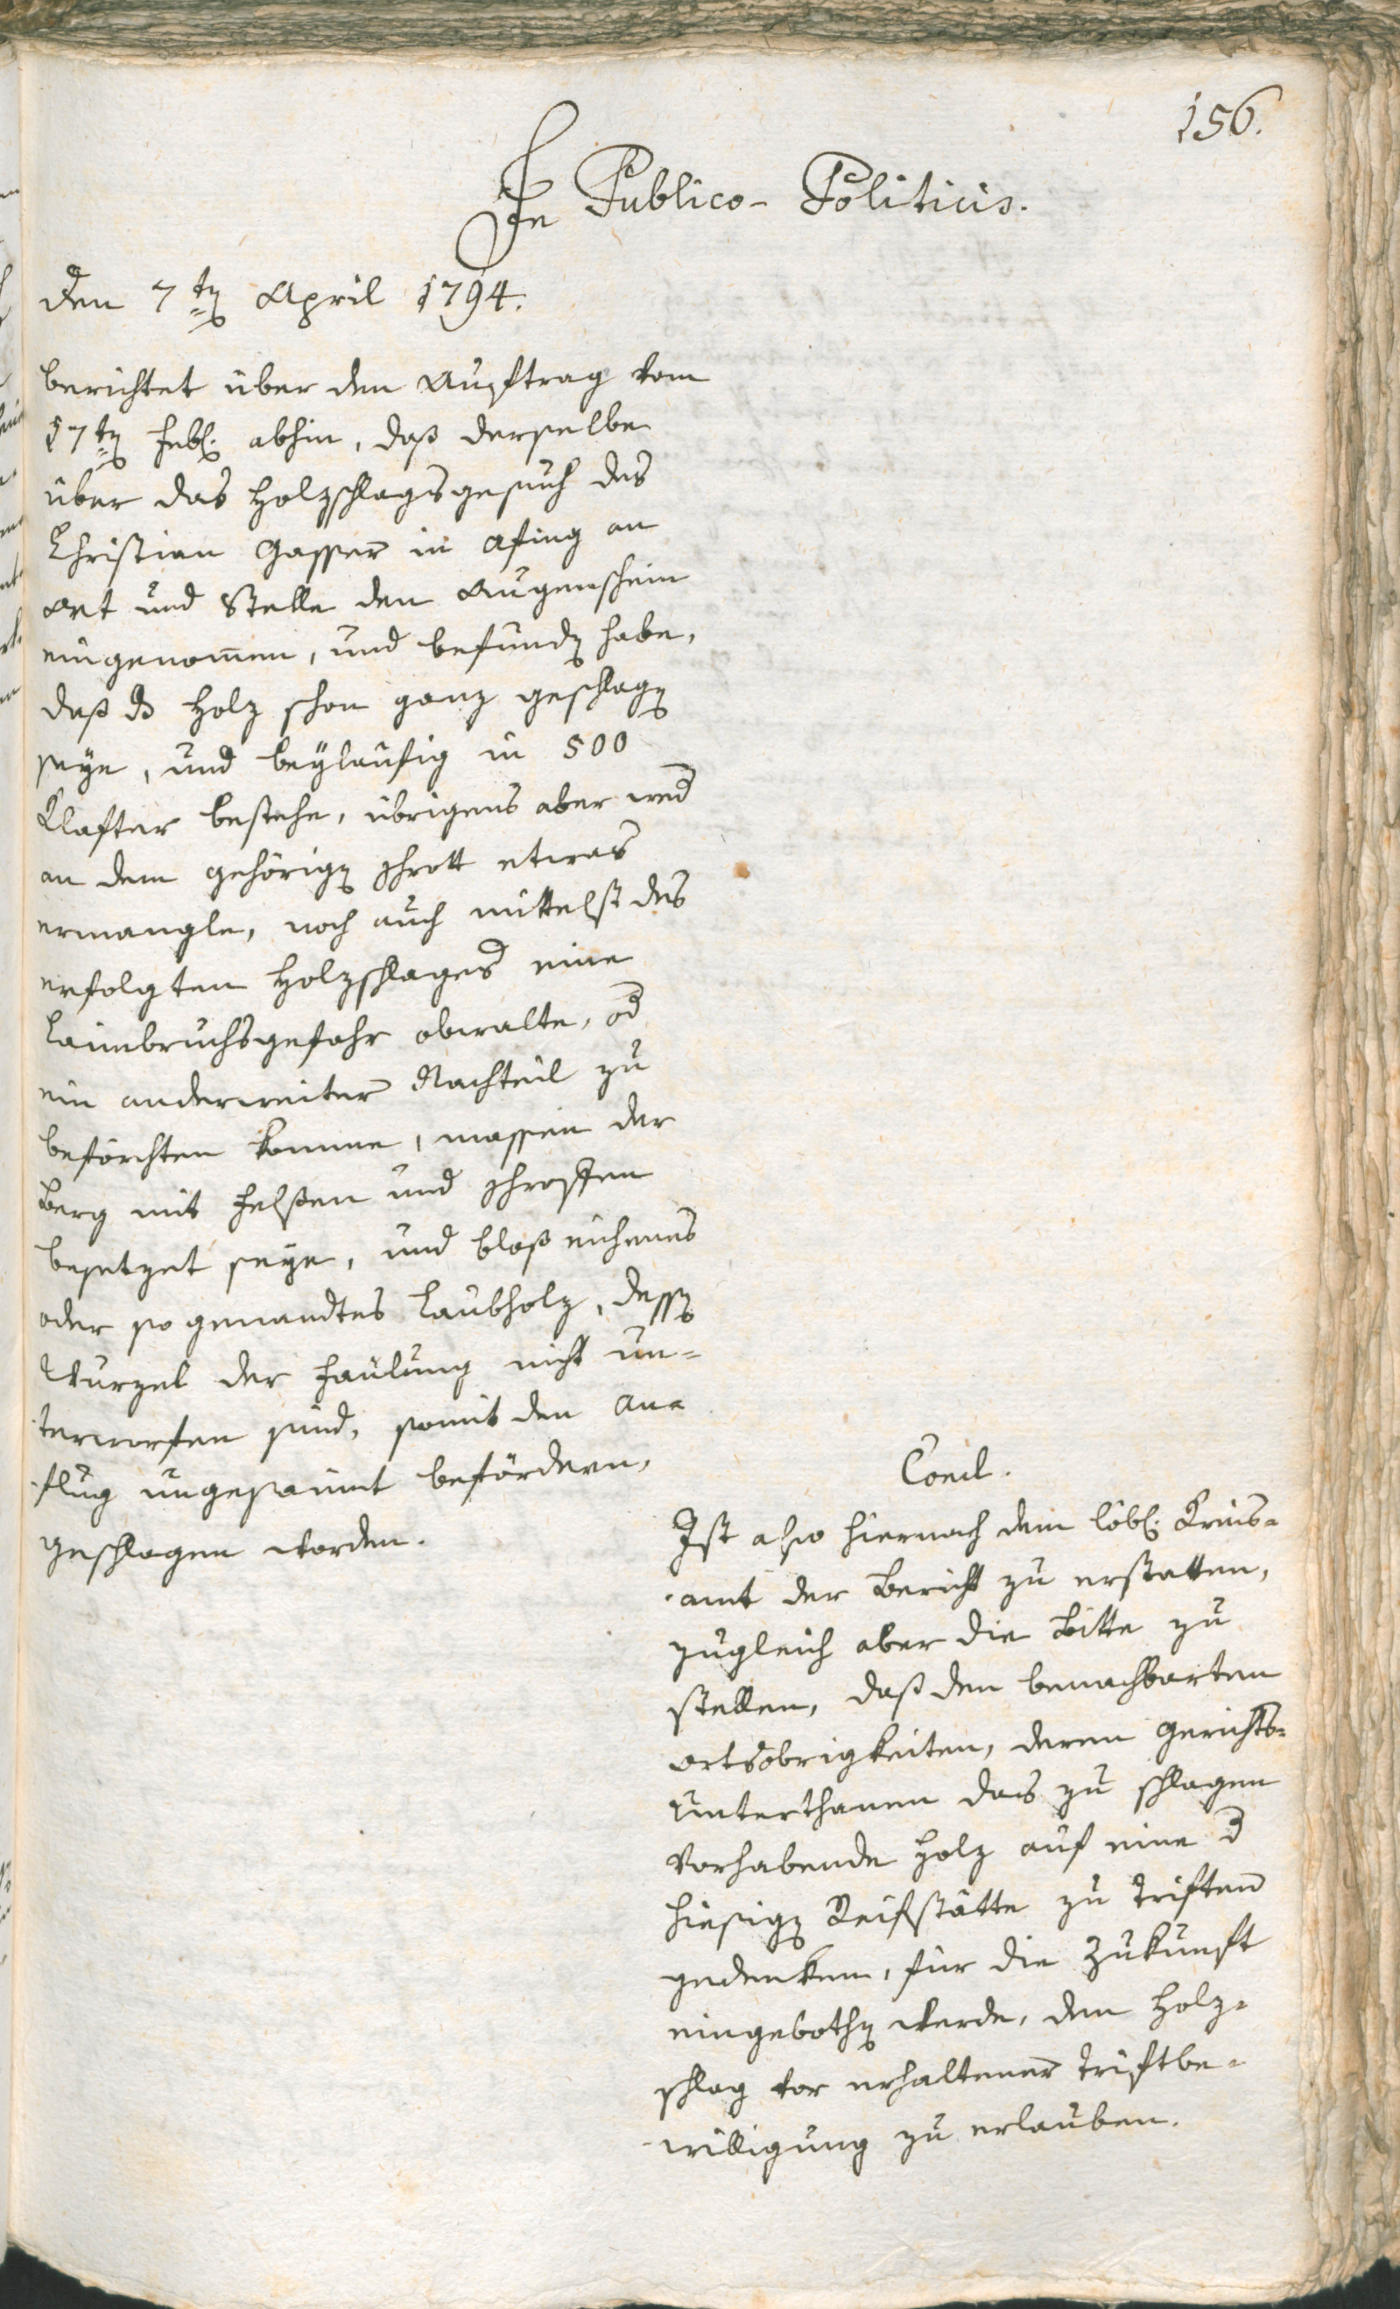 156.
In Publico-Politicis.
den 7ten April 1794.
berichtet über den Auftrag vom
17ten Febr. abhin, daß derselbe
über das Holzschlagsgesuch des
Christian Gasser in Afing an
Ort und Stelle den Augenschein
eingenommen, und befunden habe,
daß das Holz schon ganz geschlagen
seye, und beyläufig in 500
Klafter bestehe, übrigens aber weder
an dem gehörigen Schrott etwas
ermangle, noch auch mittelst des
erfolgten Holzschlages eine
Lainbruchsgefahr obwalte, oder
ein anderweiter Nachteil zu
beförchten komme, massen der
Berg mit Felßen und Schroffen
besetzet seye, und bloß eichenes
oder so genandtes Laubholz, dessen
Wurzel der Faülung nicht un-
terworfen sind, somit den An-
flug ungesaümt befördern,
geschlagen worden.
Concl.
Ist also hiernach dem löbl. Kreis-
amt der Bericht zu erstatten,
zugleich aber die Bitte zu
stellen, daß den benachbarten
Ortsobrigkeiten, deren Gerichts-
Unterthanen das zu schlagen
vorhabende Holz auf eine der
hiesigen Reifstätte zu triften
gedenken, für die Zukunft
eingebothen werde, den Holz-
schlag vor erhaltener Triftbe-
willigung zu erlauben.